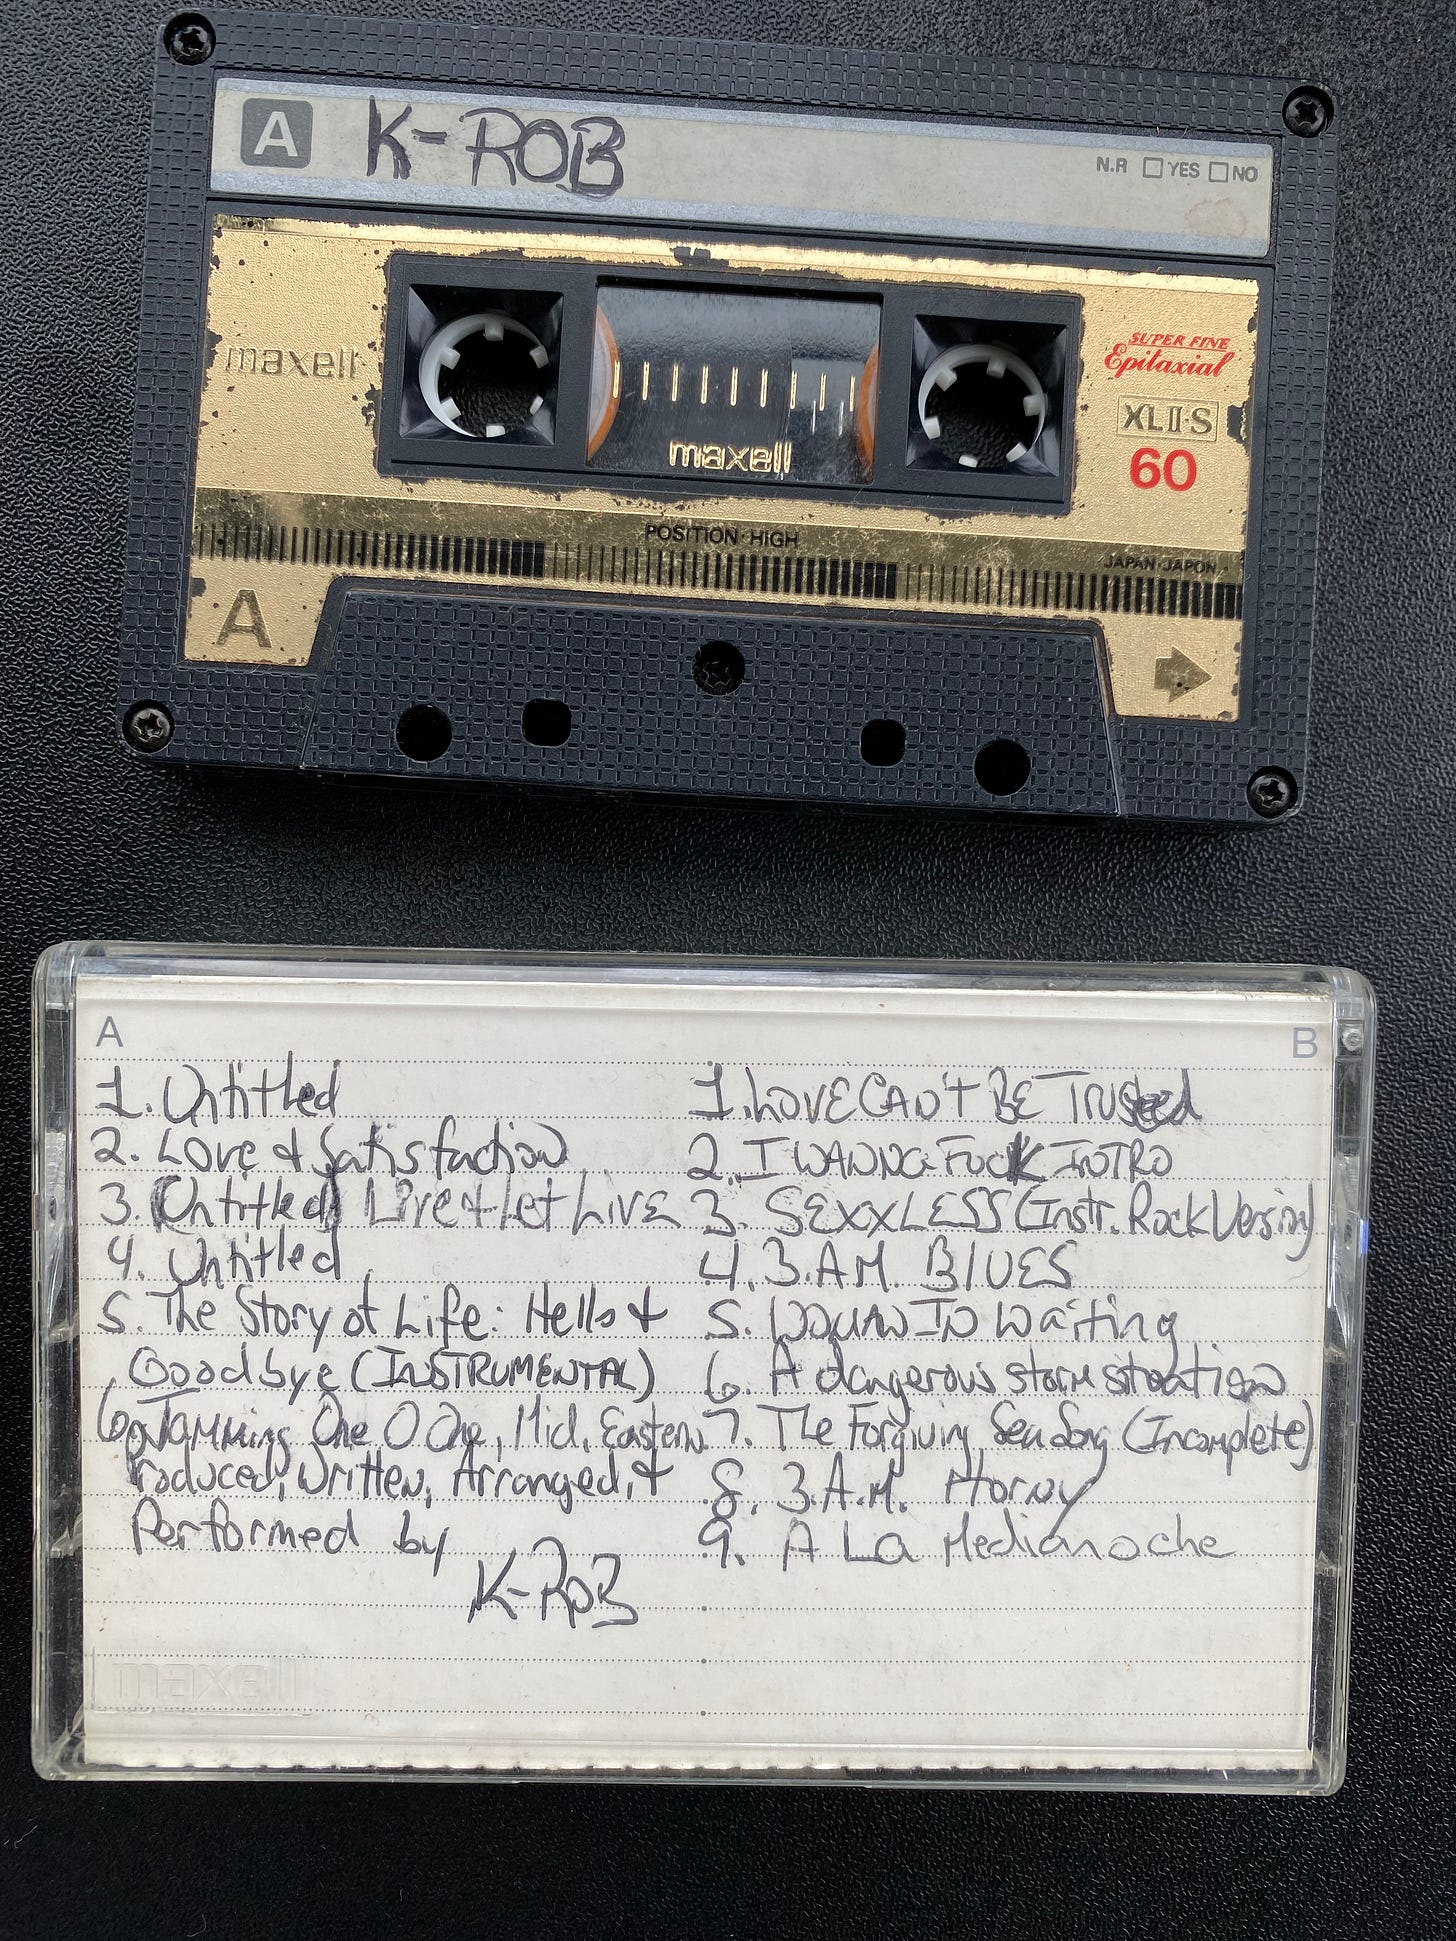 A K-ROB N.R YES NO
maxell
SUPER FINE
Epitaxial
XLII-S
60
maxell
POSITION·HIGH
JAPAN·JAPON
A
A B
1. Untitled
2. Love & Satisfaction
3. Untitled Live & Let LIVE
4. Untitled
5. The Story of Life: Hello &
Goodbye (INSTRUMENTAL)
6. Jamming One O One, Mid. Eastern
Produced, Written, Arranged, &
Performed by
K-ROB
1. LOVE CAN'T BE TRUSted
2. I WANNA FUCK INTRO
3. SEXXLESS (Instr. Rock Version)
4. 3.A.M. BLUES
5. WOMAN IN Waiting
6. A dangerous storm
7. The Forgiving Sea Song (Incomplete)
8. 3.A.M. Horny
9. A La Medianoche
maxell